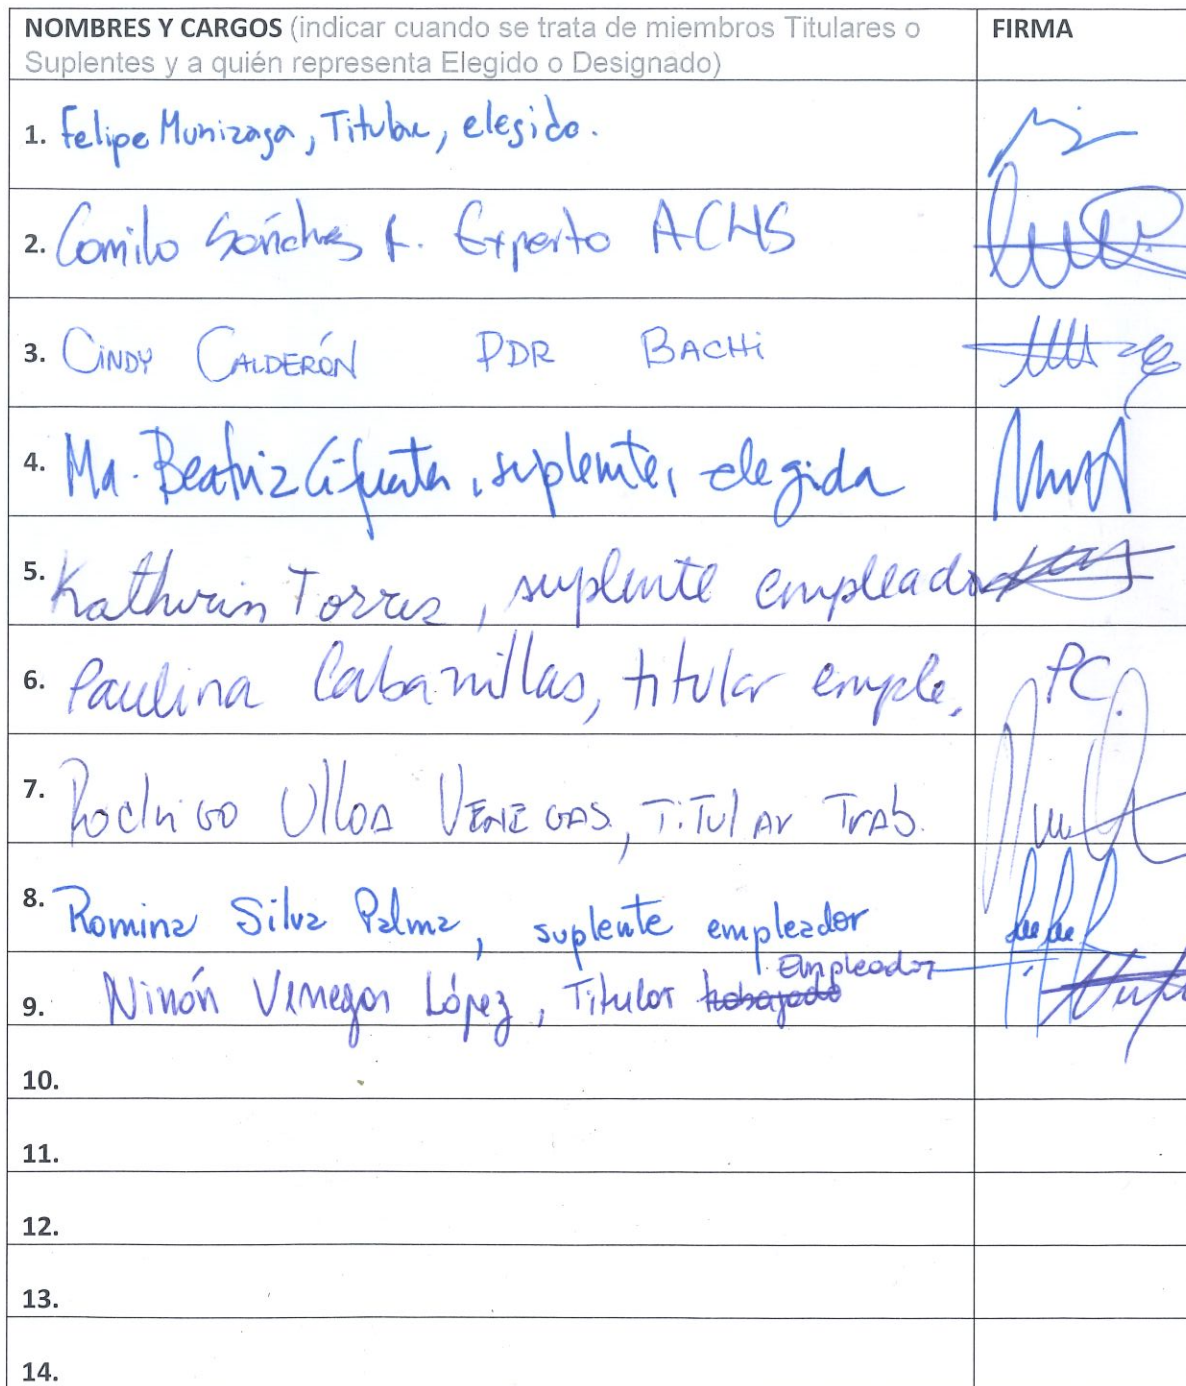 NOMBRES Y CARGOS (indicar cuando se trata de miembros Titulares o FIRMA
Suplentes y a quién representa Elegido o Designado)
1. Felipe Munizaga, Titular, elegido.
2. Camilo Sánchez f. Experto ACHS
3. CINDY CALDERÓN PDR BACHi
4. Ma. Beatriz Cifuentes, suplente, elegida
5. Kathrin Torres, suplente empleador
6. Paulina Cabanillas, titular emple. PC.
7. Rodrigo Ulloa VENEGAS, TiTular Trab.
8. Romina Silva Palma, suplente empleador
Empleador
9. Ninón Venegas López, Titular trabajado
10.
11.
12.
13.
14.